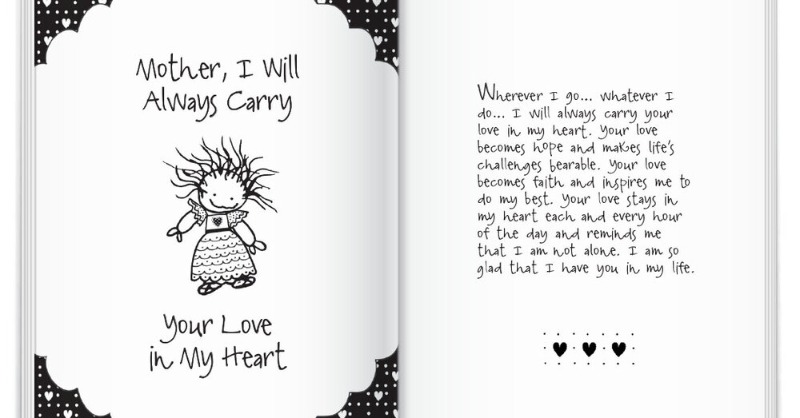 Mother, I Will
Always Carry
Your Love
in My Heart
Wherever I go... whatever I
do... I will always carry your
love in my heart. Your love
becomes hope and makes life's
challenges bearable. Your love
becomes faith and inspires me to
do my best. Your love stays in
my heart each and every hour
of the day and reminds me
that I am not alone. I am so
glad that I have you in my life.